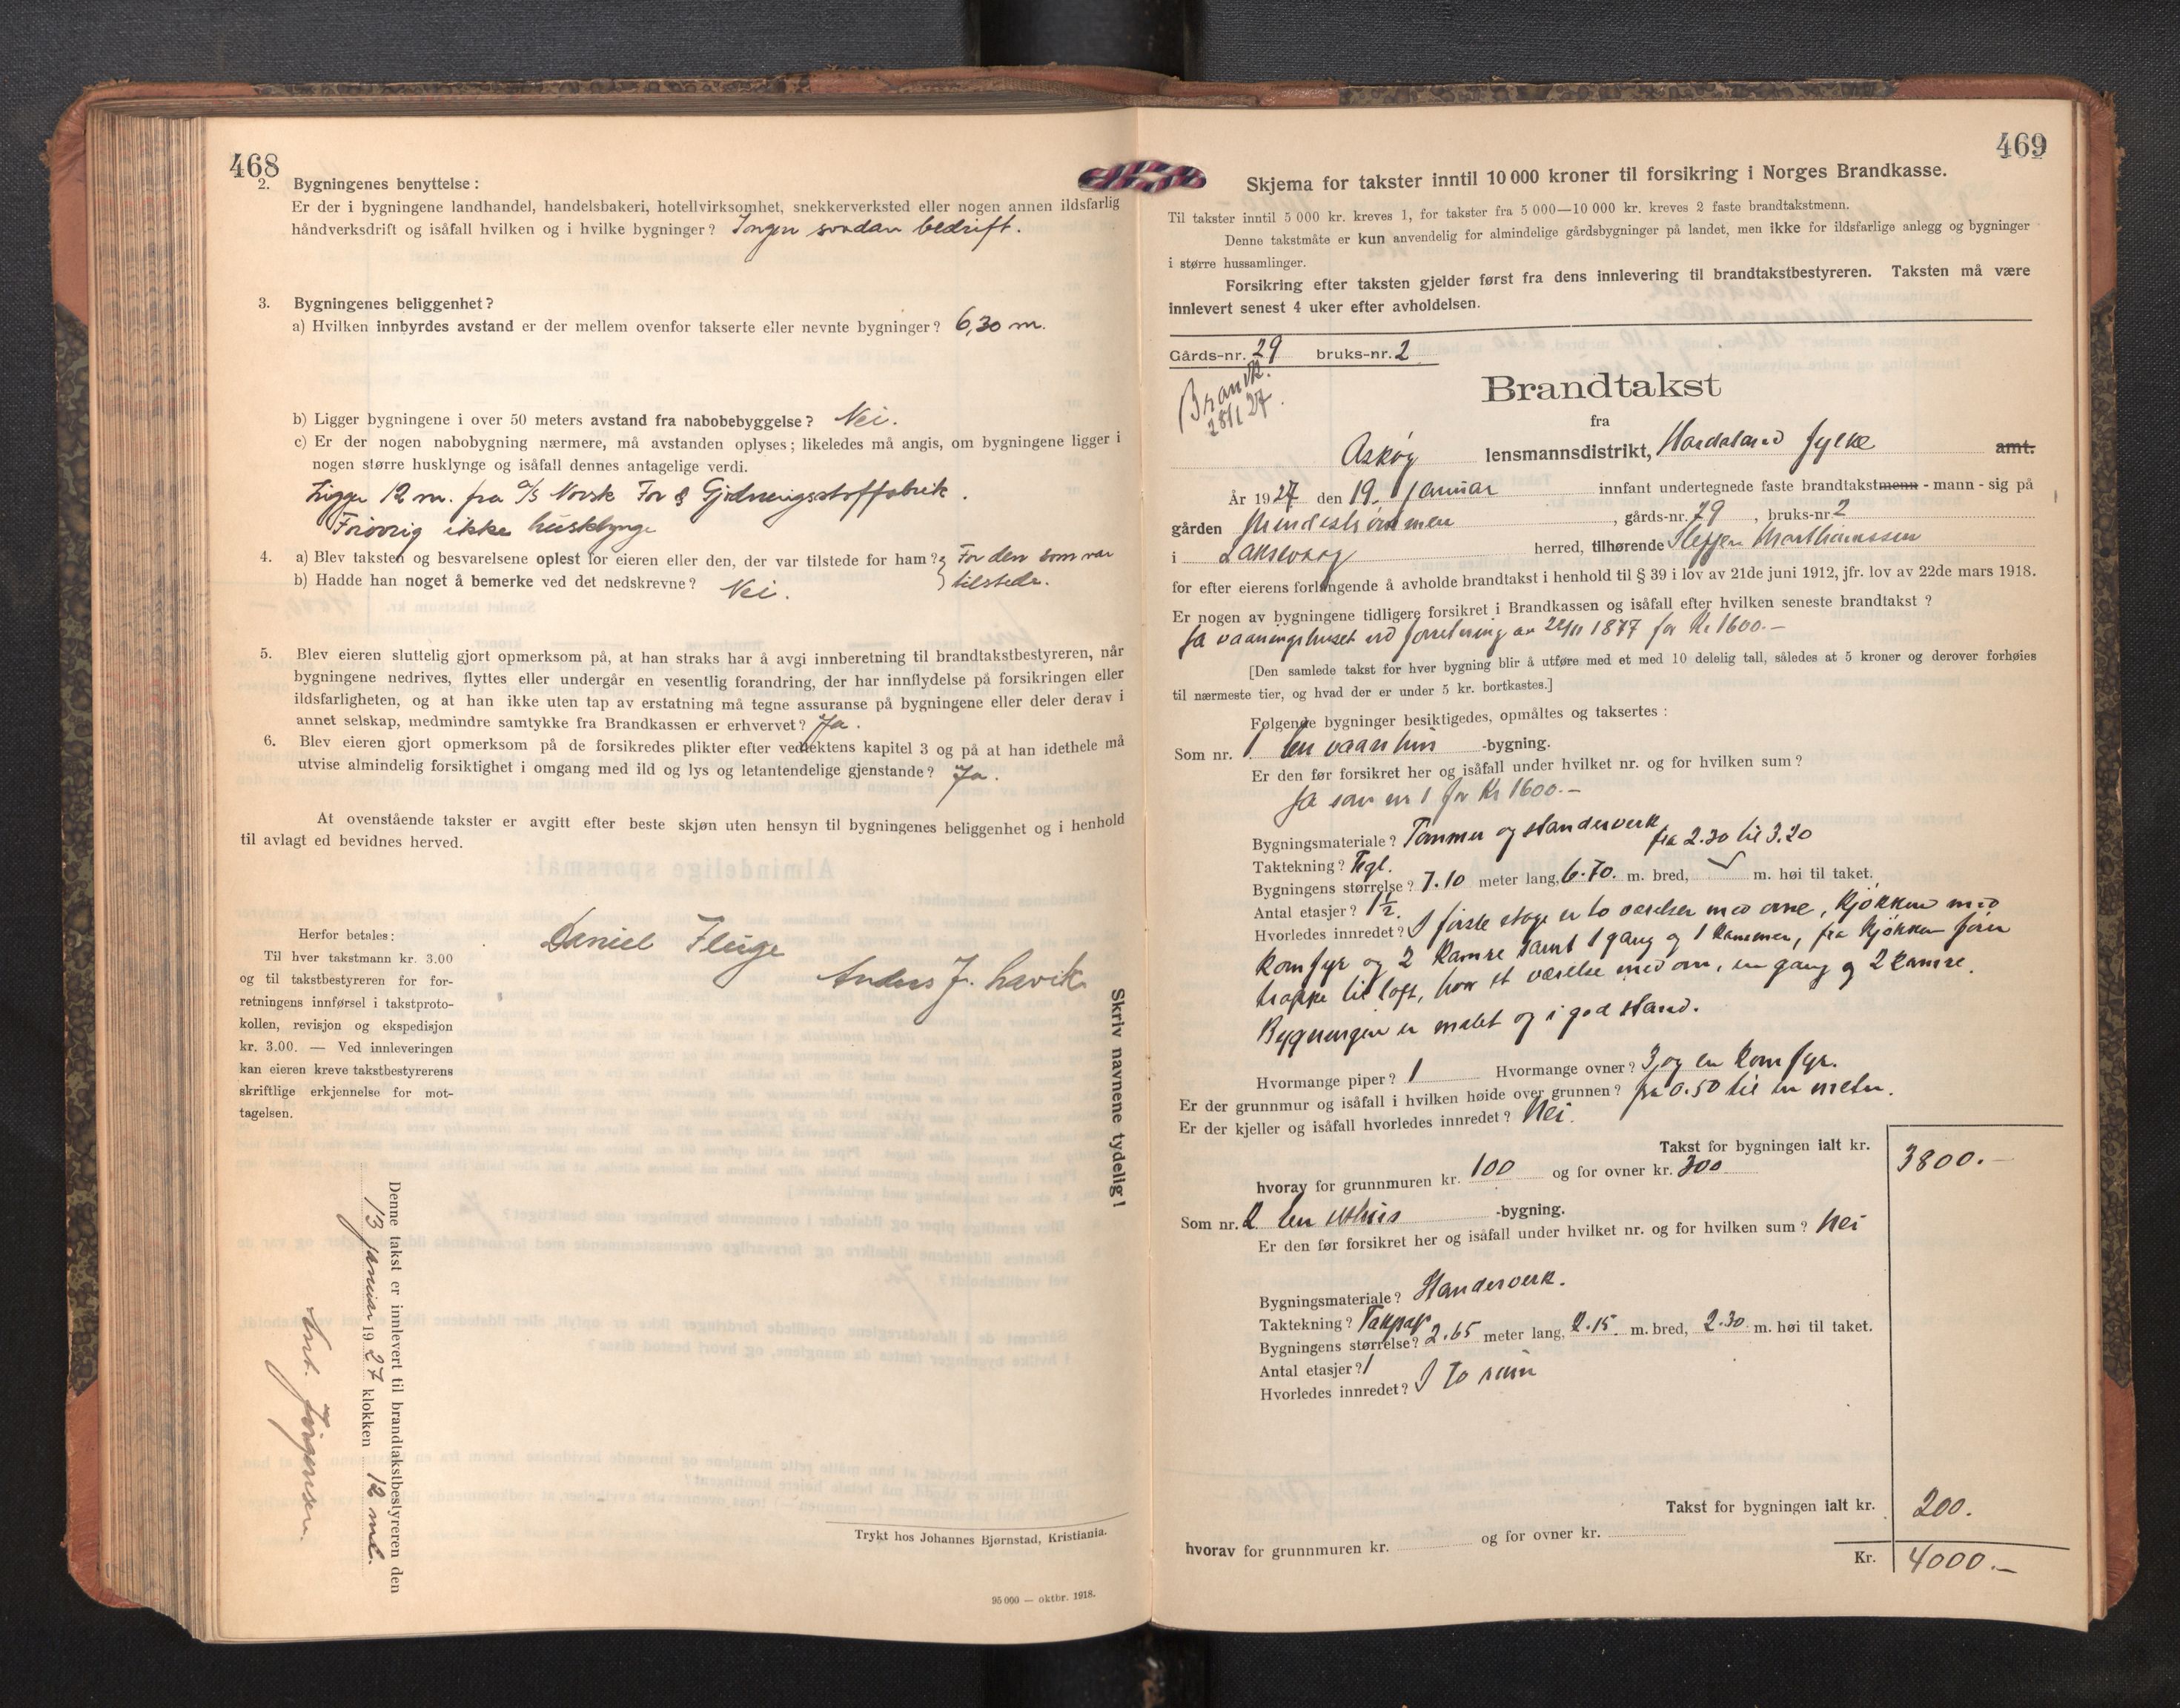 468
2. Bygningenes benyttelse:
Er der i bygningene landhandel, handelsbakeri, hotellvirksomhet, snekkerverksted eller nogen annen ildsfarlig
håndverksdrift og isåfall hvilken og i hvilke bygninger? Ingen saadan bedrift.
3. Bygningenes beliggenhet?
a) Hvilken innbyrdes avstand er der mellem ovenfor takserte eller nevnte bygninger? 6,30 m.
b) Ligger bygningene i over 50 meters avstand fra nabobebyggelse? Nei.
c) Er der nogen nabobygning nærmere, må avstanden oplyses; likeledes må angis, om bygningene ligger i
nogen større husklynge og isåfall dennes antagelige verdi.
Ligger 12 m. fra A/S Norsk For & Gjødningsstoffabrik.
Forøvrig ikke husklynge
4. a) Blev taksten og besvarelsene oplest for eieren eller den, der var tilstede for ham? } For den som var
b) Hadde han noget å bemerke ved det nedskrevne? Nei. tilstede.
5. Blev eieren sluttelig gjort opmerksom på, at han straks har å avgi innberetning til brandtakstbestyreren, når
bygningene nedrives, flyttes eller undergår en vesentlig forandring, der har innflydelse på forsikringen eller
ildsfarligheten, og at han ikke uten tap av erstatning må tegne assuranse på bygningene eller deler derav i
annet selskap, medmindre samtykke fra Brandkassen er erhvervet? Ja.
6. Blev eieren gjort opmerksom på de forsikredes plikter efter vedtektens kapitel 3 og på at han idethele må
utvise almindelig forsiktighet i omgang med ild og lys og letantendelige gjenstande? Ja.
At ovenstående takster er avgitt efter beste skjøn uten hensyn til bygningenes beliggenhet og i henhold
til avlagt ed bevidnes herved.
Daniel Fluge
Anders J. Lavik
Herfor betales:
Til hver takstmann kr. 3.00
og til takstbestyreren for for-
retningens innførsel i takstproto-
kollen, revisjon og ekspedisjon
kr. 3.00. — Ved innleveringen
kan eieren kreve takstbestyrerens
skriftlige erkjennelse for mot-
tagelsen.
Skriv navnene tydelig!
Denne takst er innlevert til brandtakstbestyreren den
13 januar 1927 klokken 12 md.
Jørgensen.
Trykt hos Johannes Bjørnstad, Kristiania.
95 000 — oktbr. 1918.
469
Skjema for takster inntil 10 000 kroner til forsikring i Norges Brandkasse.
Til takster inntil 5 000 kr. kreves 1, for takster fra 5 000—10 000 kr. kreves 2 faste brandtakstmenn.
Denne takstmåte er kun anvendelig for almindelige gårdsbygninger på landet, men ikke for ildsfarlige anlegg og bygninger
i større hussamlinger.
Forsikring efter taksten gjelder først fra dens innlevering til brandtakstbestyreren. Taksten må være
innlevert senest 4 uker efter avholdelsen.
Gårds-nr. 29 bruks-nr. 2
Brandk.
28/1 27.
Brandtakst
fra
Askøy lensmannsdistrikt, Hordaland fylke amt.
År 1927 den 19. januar innfant undertegnede faste brandtakstmenn - mann - sig på
gården , gårds-nr. 29, bruks-nr. 2
i Laksevaag herred, tilhørende Steffen
for efter eierens forlangende å avholde brandtakst i henhold til § 39 i lov av 21de juni 1912, jfr. lov av 22de mars 1918.
Er nogen av bygningene tidligere forsikret i Brandkassen og isåfall efter hvilken seneste brandtakst?
Ja vaaningshuset ved forretning av 22/11 1877 for Kr 1600.-
[Den samlede takst for hver bygning blir å utføre med et med 10 delelig tall, således at 5 kroner og derover forhøies
til nærmeste tier, og hvad der er under 5 kr. bortkastes.]
Følgende bygninger besiktigedes, opmåltes og taksertes:
Som nr. 1 en vaanhus -bygning.
Er den før forsikret her og isåfall under hvilket nr. og for hvilken sum?
Ja som nr 1 for Kr 1600.-
Bygningsmateriale? Tømmer og standerverk
Taktekning? Tegl. fra 2.30 til 3.20
Bygningens størrelse? 7.10 meter lang, 6.70. m. bred, m. høi til taket.
Antal etasjer? 1½.
Hvorledes innredet? I første etage er to værelser med ovne, kjøkken med
komfyr og 2 kamre samt 1 gang og 1 kammer, fra kjøkken fører
trappe til loft, hvor et værelse med ovn, en gang og 2 kamre.
Bygningen er malet og i god stand.
Hvormange piper? 1 Hvormange ovner? 3 og en komfyr.
Er der grunnmur og isåfall i hvilken høide over grunnen? fra 0.50 til en meter.
Er der kjeller og isåfall hvorledes innredet? Nei.
Takst for bygningen ialt kr. 3800.-
hvorav for grunnmuren kr. 100 og for ovner kr. 300
Som nr. 2 en uthus -bygning.
Er den før forsikret her og isåfall under hvilket nr. og for hvilken sum? Nei
Bygningsmateriale? Standerverk.
Taktekning? Takpap
Bygningens størrelse? 2.65 meter lang, 2.15. m. bred, 2.30 m. høi til taket.
Antal etasjer? 1
Hvorledes innredet? I to rum
Takst for bygningen ialt kr. 200.
hvorav for grunnmuren kr. og for ovner kr.
Kr. 4000.-